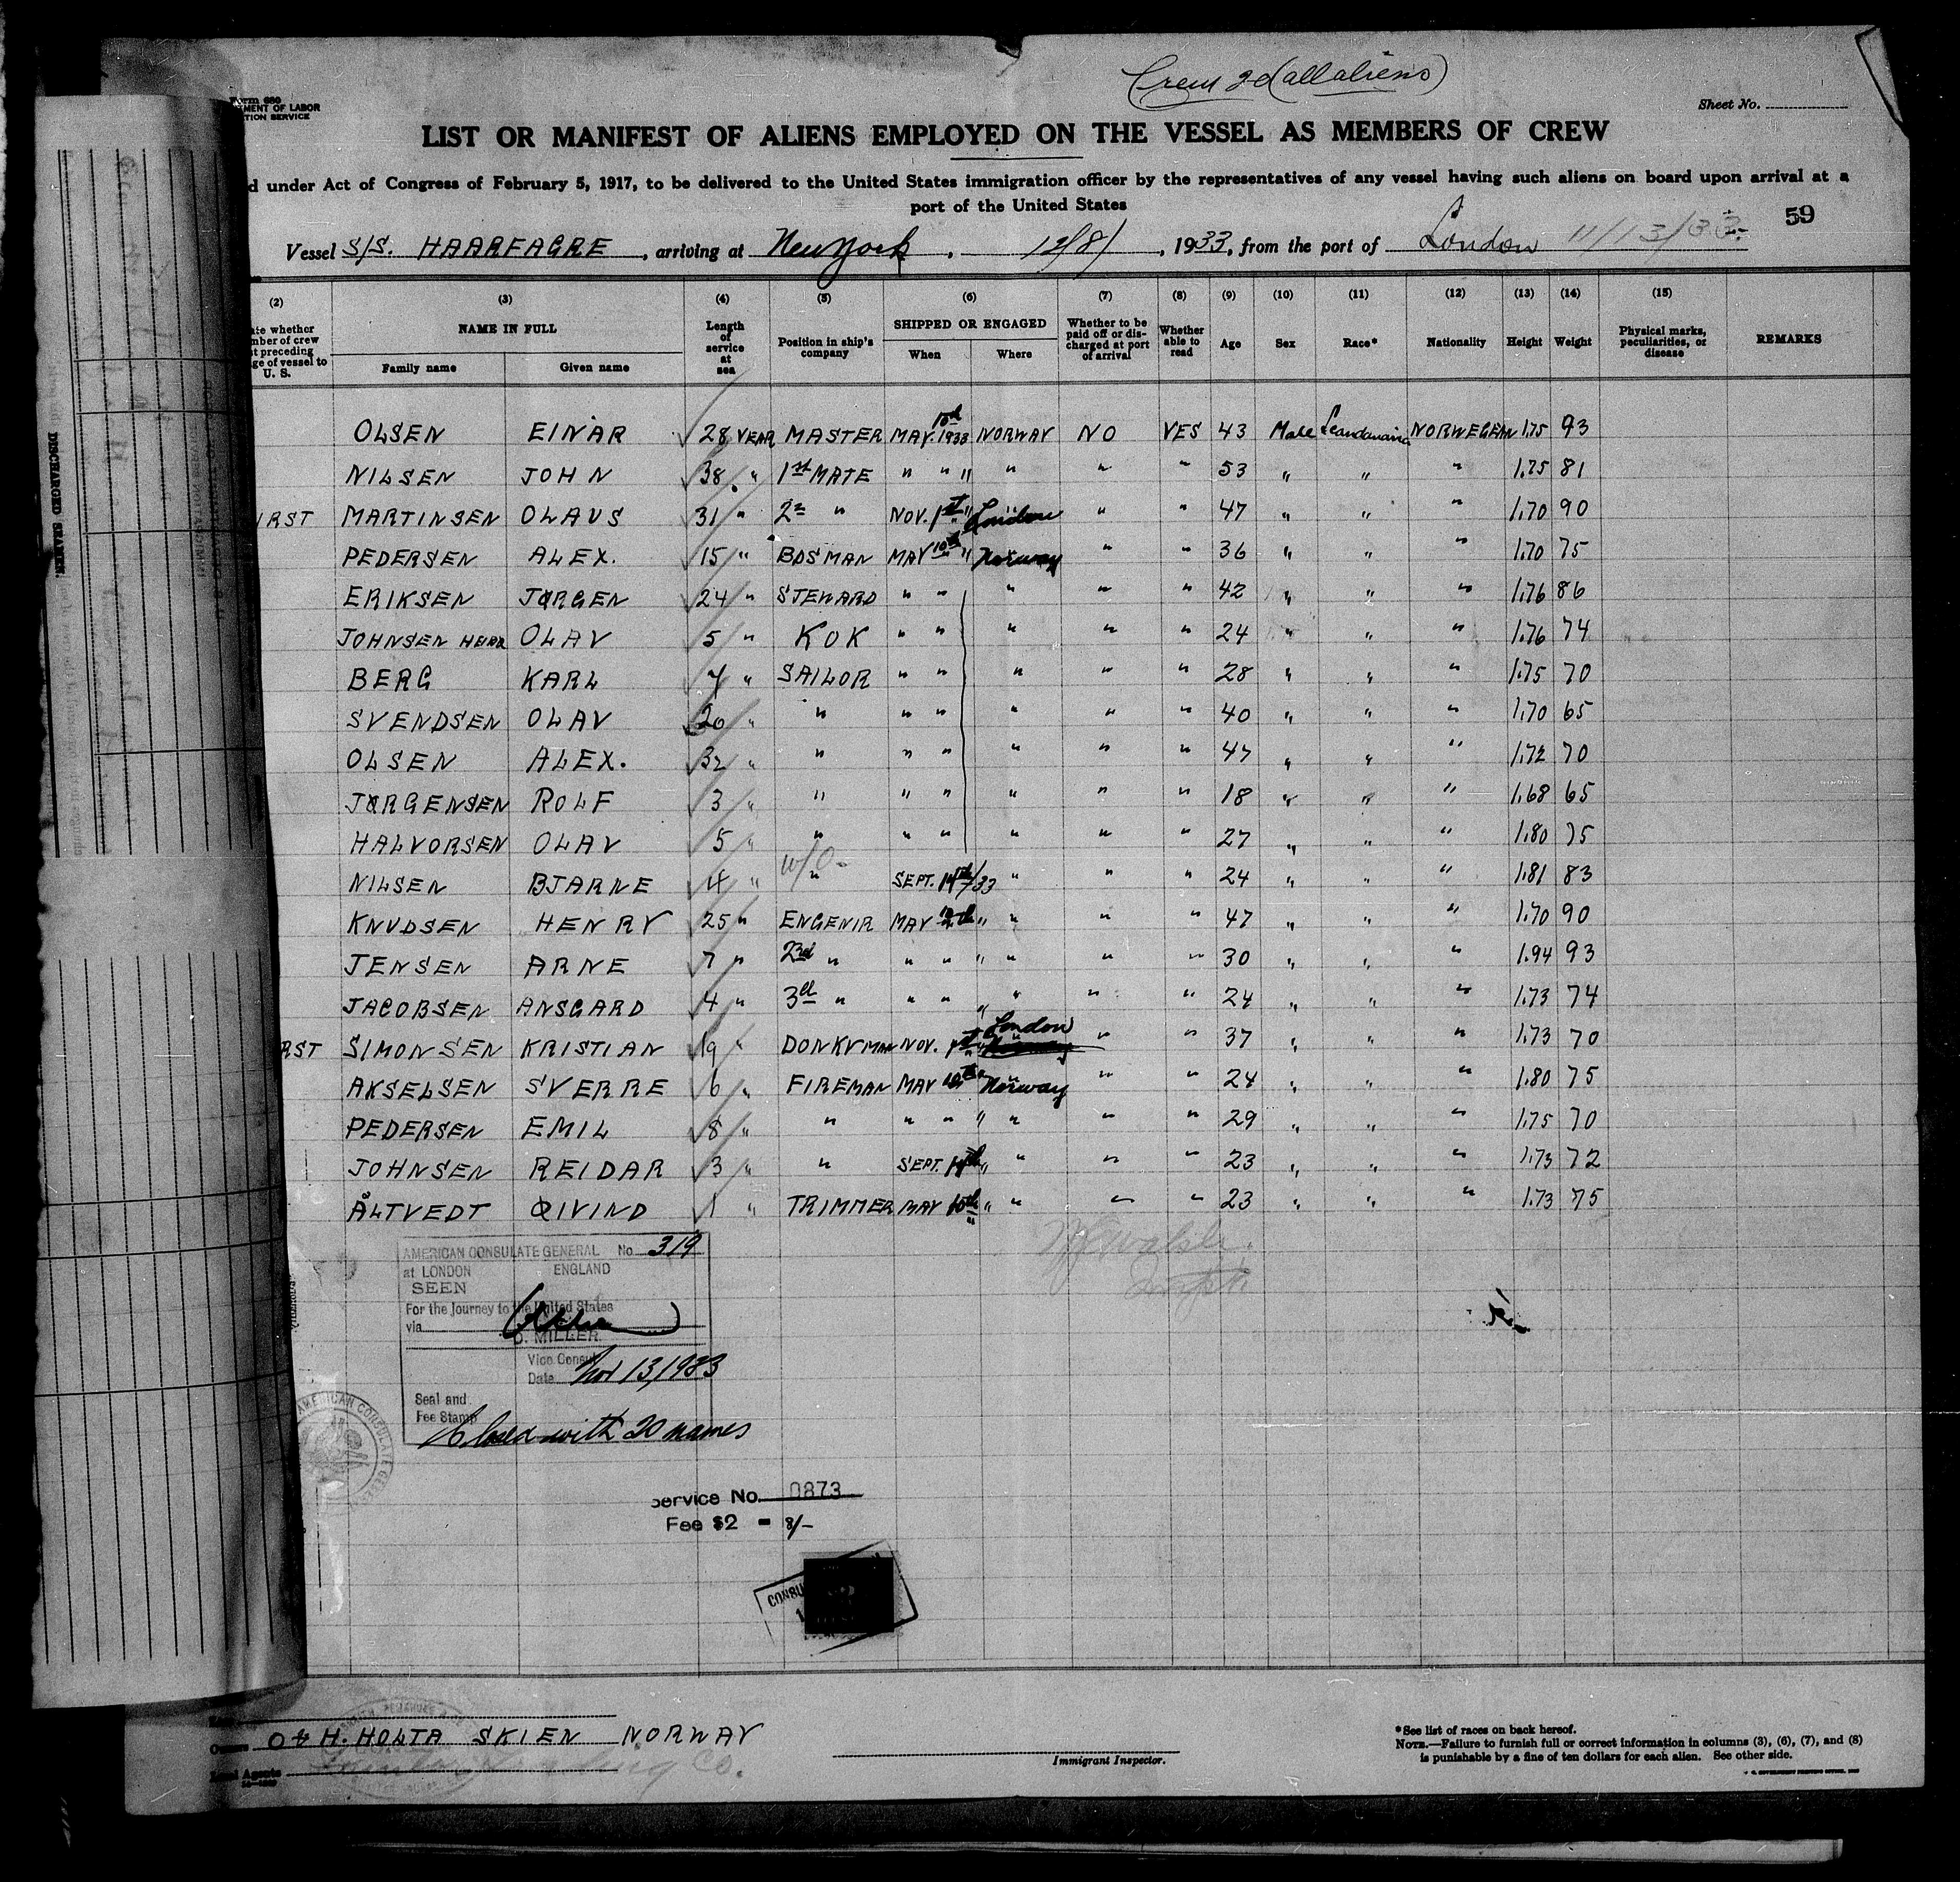 Crew 20 (all aliens)
Form 680
MENT OF LABOR
TION SERVICE
Sheet No.
LIST OR MANIFEST OF ALIENS EMPLOYED ON THE VESSEL AS MEMBERS OF CREW
d under Act of Congress of February 5, 1917, to be delivered to the United States immigration officer by the representatives of any vessel having such aliens on board upon arrival at a
port of the United States
59
Vessel S/S. HAARFAGRE, arriving at New York, 12/8/, 1933, from the port of London 11/13/33.
(2) (3) (4) (5) (6) (7) (8) (9) (10) (11) (12) (13) (14) (15)
ate whether mber of crew t preceding ge of vessel to U. S. NAME IN FULL Family name Given name Length of service at sea Position in ship's company SHIPPED OR ENGAGED When Where Whether to be paid off or discharged at port of arrival Whether able to read Age Sex Race* Nationality Height Weight Physical marks, peculiarities, or disease REMARKS
OLSEN EINAR 28 YEAR MASTER MAY. 10th 1933 NORWAY NO YES 43 Male Scandanavia NORWEGEN 1.75 93
NILSEN JOHN 38 " 1st MATE " " " " " " 53 " " " 1.75 81
IRST MARTINSEN OLAUS 31 " 2n " NOV. 1st " London " " 47 " " " 1.70 90
PEDERSEN ALEX. 15 " BOSMAN MAY 10th " Norway " " 36 " " " 1.70 75
ERIKSEN JØRGEN 24 " STEWARD " " " " " 42 " " " 1.76 86
JOHNSEN OLAV 5 " KOK " " " " " 24 " " " 1.76 74
BERG KARL 7 " SAILOR " " " " " 28 " " " 1.75 70
SVENDSEN OLAV 26 " " " " " " " 40 " " " 1.70 65
OLSEN ALEX. 32 " " " " " " " 47 " " " 1.72 70
JØRGENSEN ROLF 3 " " " " " " " 18 " " " 1.68 65
HALVORSEN OLAV 5 " " " " " " " 27 " " " 1.80 75
NILSEN BJARNE 4 " w/o- " SEPT. 14th/33 " " " 24 " " " 1.81 83
KNUDSEN HENRY 25 " ENGENIR MAY 10th " " " " 47 " " " 1.70 90
JENSEN ARNE 7 " 2nd " " " " " " " 30 " " " 1.94 93
JACOBSEN ANSGARD 4 " 3d " " " " " " " 24 " " " 1.73 74
RST SIMONSEN KRISTIAN 19 " DONKYMAN NOV. 1st " London Norway " " 37 " " " 1.73 70
AKSELSEN SVERRE 6 " FIREMAN MAY 10th " Norway " " 24 " " " 1.80 75
PEDERSEN EMIL 8 " " " " " " " " 29 " " " 1.75 70
JOHNSEN REIDAR 3 " " SEPT. 14th " " " " 23 " " " 1.73 72
ÅLTVEDT ØIVIND 1 " TRIMMER MAY 10th " " " " 23 " " " 1.73 75
AMERICAN CONSULATE GENERAL No. 319
at LONDON ENGLAND
SEEN
For the Journey to the United States
via
D. MILLER
Vice Consul
Date Nov 13, 1933
Seal and
Fee Stamp
Closed with 20 names
AMERICAN CONSULATE GENERAL
Service No. 0873
Fee $2 = 8/-
Owners O & H. HOLTA SKIEN NORWAY
Local Agents
Immigrant Inspector.
*See list of races on back hereof.
NOTE.—Failure to furnish full or correct information in columns (3), (6), (7), and (8)
is punishable by a fine of ten dollars for each alien. See other side.
DISCHARGED SEAMEN.